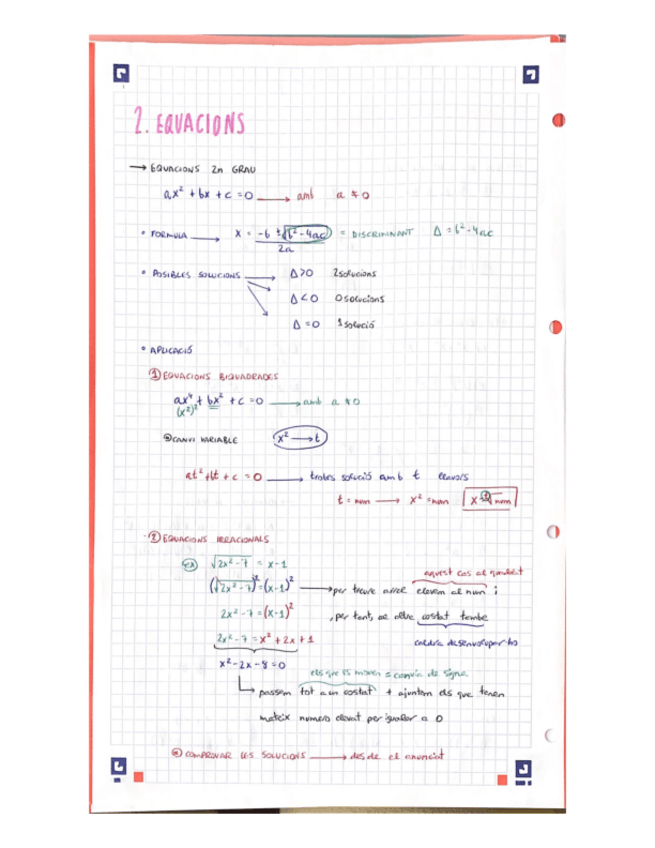 2. EQUACIONS
→ EQUACIONS 2n GRAU
ax² + bx + c = 0 → amb a ≠ 0
• FORMULA → x = -b ±√b²-4ac / 2a = DISCRIMINANT Δ = b²-4ac
• POSIBLES SOLUCIONS → Δ>0 2 solucions
Δ<0 0 solucions
Δ=0 1 solució
• APLICACIÓ
① EQUACIONS BIQUADRADES
ax⁴ + bx² + c = 0 → amb a ≠ 0
(x²)²
CANVI VARIABLE x² → t
at² + bt + c = 0 → trobes solució amb t llavors
t = num → x² = num x = ±√num
② EQUACIONS IRRACIONALS
EX √2x²-7 = x-1
aquest cas al quadrat
(√2x²-7)² = (x-1)² → per treure arrel elevem al num i
2x²-7 = (x-1)² , per tant, se altre costat tambe
2x²-7 = x² + 2x + 1 caldria desenvolupar-ho
x²-2x-8=0
els que es moven = canvia de signe
passem tot a un costat + ajuntem els que tenen
mateix numero elevat per igualar a 0
COMPROVAR LES SOLUCIONS → desde el enunciat